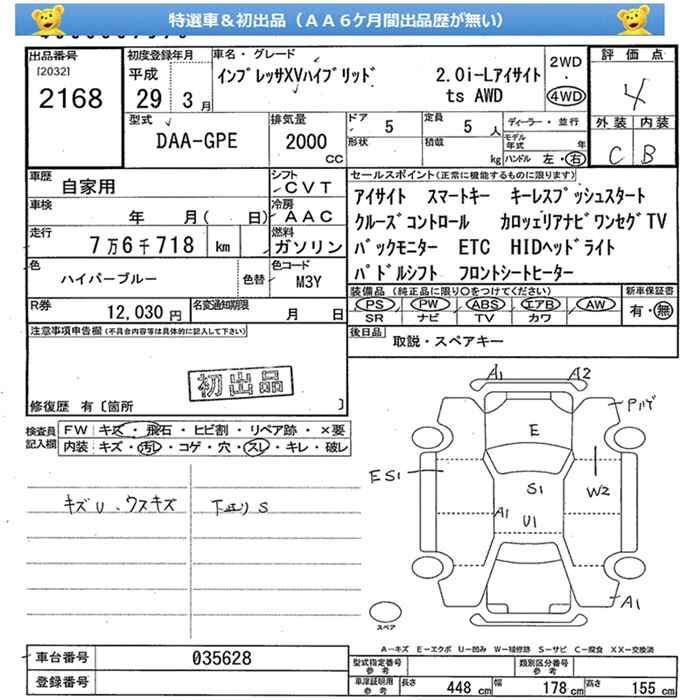 特選車＆初出品（ＡＡ６ケ月間出品歴が無い）
出品番号
[2032]
2168
初度登録年月
平成
29年 3月
車名・グレード
インプレッサXVハイブリッド 2.0i-Lアイサイト
ts AWD
2WD
・
4WD
評価点
4
外装 内装
C B
型式
DAA-GPE
排気量
2000
CC
ドア 5
形状
定員 5 人
積載 kg
ディーラー・並行
モデル年式 年
ハンドル 左・右
車歴 自家用
シフト CVT
車検 年 月( 日)
冷房 AAC
走行 7万6千718 km
燃料 ガソリン
色 ハイパーブルー 色替
色コード M3Y
R券 12,030 円
名変通知期限 月 日
セールスポイント(正常に機能するものに限ります)
アイサイト スマートキー キーレスプッシュスタート
クルーズコントロール カロッェリアナビワンセグTV
バックモニター ETC HIDヘッドライト
パドルシフト フロントシートヒーター
装備品 (純正品に限り○をつけてください)
PS PW ABS エアB AW
SR ナビ TV カワ
新車保証書
有・無
後日品 取説・スペアキー
注意事項申告欄(不具合内容等は具体的に記入して下さい)
初出品
修復歴 有〔箇所 〕
検査員記入欄
FW キズ・飛石・ヒビ割・リペア跡・×要
内装 キズ・汚レ・コゲ・穴・スレ・キレ・破レ
キズU、ウスキズ
下廻り S
A1
A2
E
ES1
S1
W2
A1
U1
A1
スペア
A－キズ E－エクボ U－凹み W－補修跡 S－サビ C－腐食 XX－交換済
車台番号 035628
登録番号
型式指定番号 参考
類別区分番号 参考
車庫証明用 参考
長さ 448 cm 幅 178 cm 高さ 155 cm